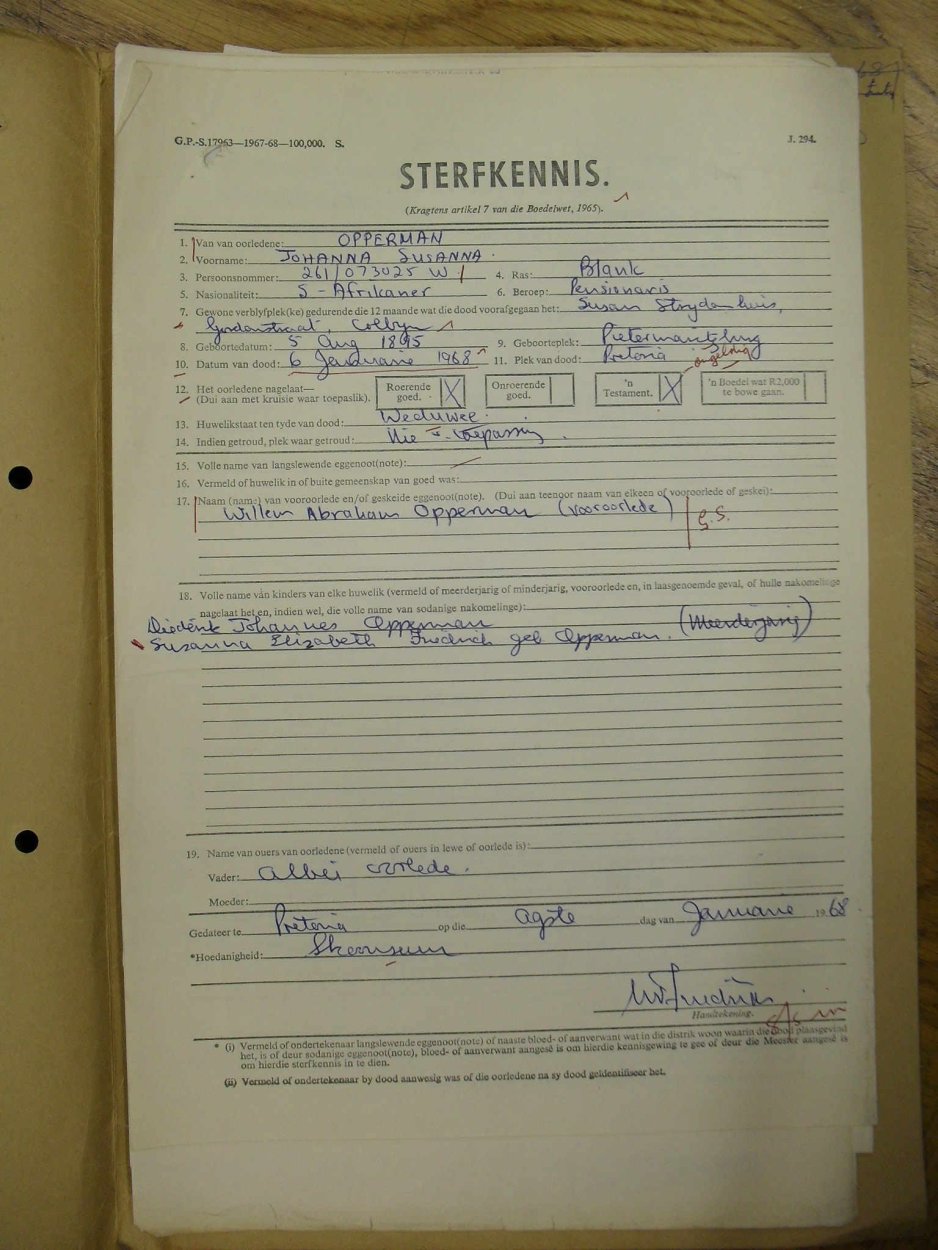 G.P.-S.17963—1967-68—100,000. S. J. 294.
STERFKENNIS.
(Kragtens artikel 7 van die Boedelwet, 1965).
1. Van van oorledene: OPPERMAN
2. Voorname: JOHANNA SUSANNA.
3. Persoonsnommer: 261/073025 W 4. Ras: Blank
5. Nasionaliteit: S-Afrikaner 6. Beroep: Pensionaris
7. Gewone verblyfplek(ke) gedurende die 12 maande wat die dood voorafgegaan het: Susan Strydomhuis,
Gordonstraat, Colbyn
8. Geboortedatum: 5 Aug 1895 9. Geboorteplek: Pietermaritzburg
10. Datum van dood: 6 Januarie 1968 11. Plek van dood: Pretoria
12. Het oorledene nagelaat— Roerende goed. X Onroerende goed. 'n Testament. X 'n Boedel wat R2,000 te bowe gaan.
(Dui aan met kruisie waar toepaslik).
13. Huwelikstaat ten tyde van dood: Weduwee.
14. Indien getroud, plek waar getroud: Nie v. toepassing.
15. Volle name van langslewende eggenoot(note):
16. Vermeld of huwelik in of buite gemeenskap van goed was:
17. Naam (name) van vooroorlede en/of geskeide eggenoot(note). (Dui aan teenoor naam van elkeen of vooroorlede of geskei):
Willem Abraham Opperman (vooroorlede)
G.S.
18. Volle name van kinders van elke huwelik (vermeld of meerderjarig of minderjarig, vooroorlede en, in laasgenoemde geval, of hulle nakomelinge
nagelaat het en, indien wel, die volle name van sodanige nakomelinge):
Diederik Johannes Opperman
Susanna Elizabeth Friedrich geb Opperman. (Meerderjarig)
19. Name van ouers van oorledene (vermeld of ouers in lewe of oorlede is):
Vader: Albei oorlede.
Moeder:
Gedateer te Pretoria op die agste dag van Januarie 1968
*Hoedanigheid: Skoonseun
Handtekening.
* (i) Vermeld of ondertekenaar langslewende eggenoot(note) of naaste bloed- of aanverwant wat in die distrik woon waarin die dood plaasgevind
het, is of deur sodanige eggenoot(note), bloed- of aanverwant aangesê is om hierdie kennisgewing te gee of deur die Meester aangesê is
om hierdie sterfkennis in te dien.
(ii) Vermeld of ondertekenaar by dood aanwesig was of die oorledene na sy dood geïdentifiseer het.